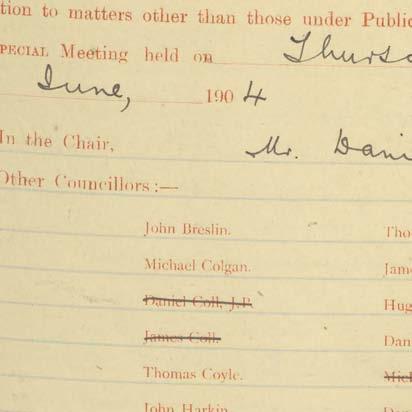 tion to matters other than those under Public
SPECIAL Meeting held on Thursd
June, 1904
In the Chair, Mr. Dani
Other Councillors:—
John Breslin. Tho
Michael Colgan. Jam
Daniel Coll, J.P. Hug
James Coll. Dan
Thomas Coyle. Mich
John Harkin.